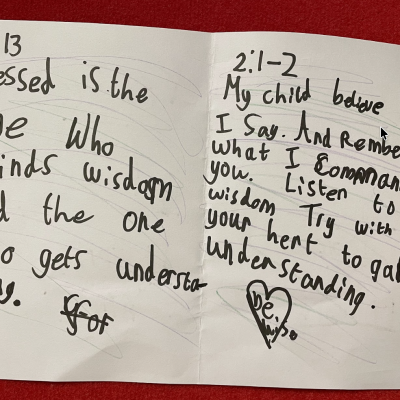 13
essed is the
e Who
inds wisdom
d the one
o gets understa
g.
for
2:1-2
My child believe
I Say. And Rembe
what I Comman
you. Listen to
wisdom Try with
your hert to gai
understanding.
be
wise